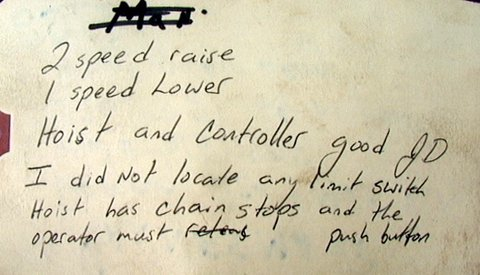 2 speed raise
1 speed Lower
Hoist and Controller good JD
I did Not locate any limit switch
Hoist has chain stops and the
operator must push button